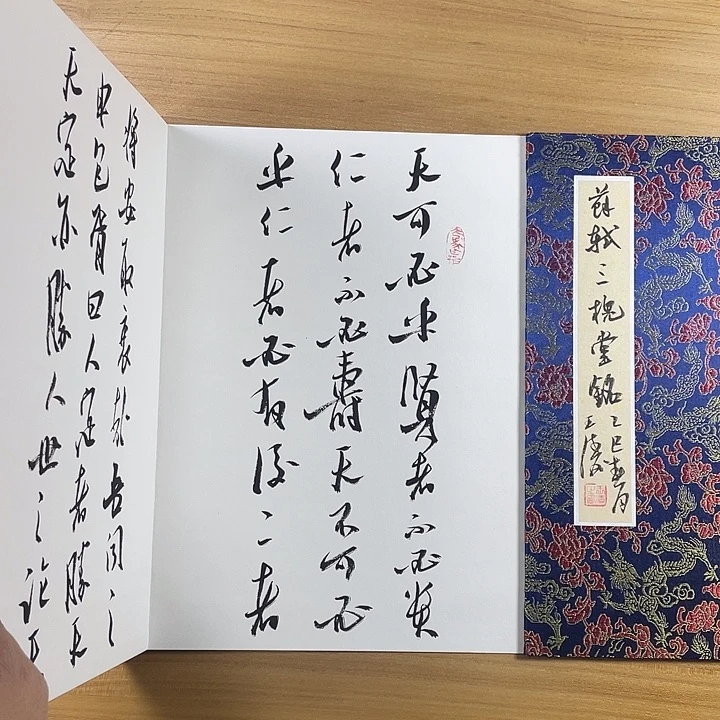 蘇軾三槐堂銘
乙巳春月
天可必乎賢者不必貴
仁者不必壽天不可必
乎仁者必有後二者
將安取衷哉吾聞之
申包胥曰人定者勝天
天定亦勝人世之論